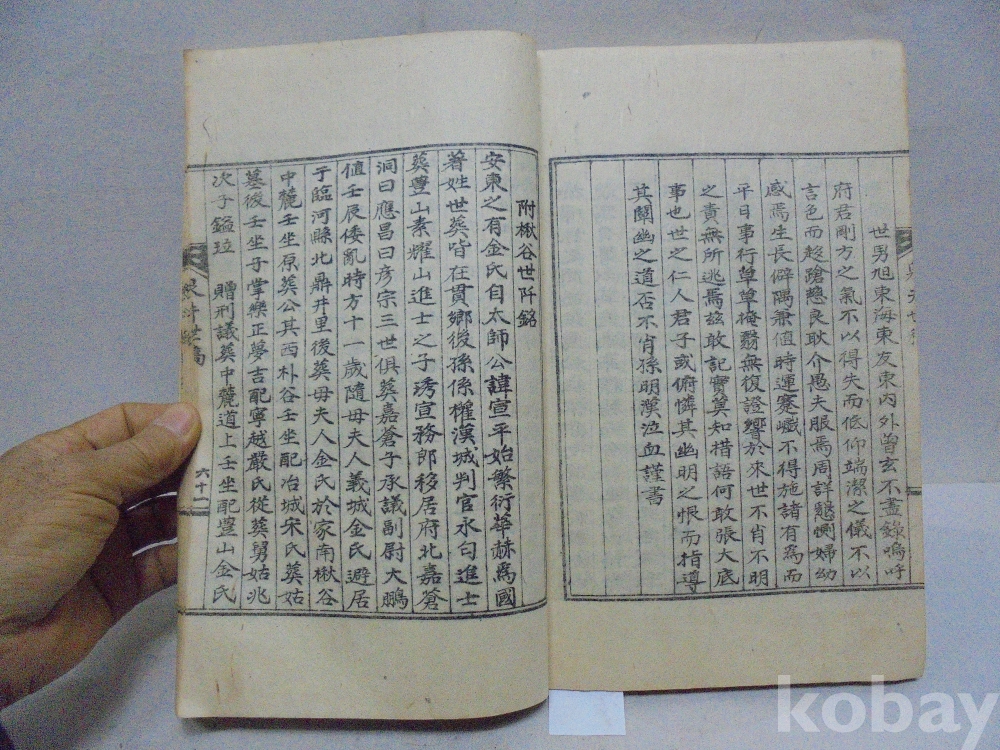 世男旭東海東友東內外曾玄不盡錄嗚呼
府君剛方之氣不以得失而低仰端潔之儀不以
言色而趍蹌戇良耿介愚夫服焉周詳懇惻婦幼
感焉生長僻隅兼値時運蹇巇不得施諸有爲而
平日事行草草掩翳無復證響於來世不肖不明
之責無所逃焉玆敢記實莫知措語何敢張大底
事也世之仁人君子或俯憐其幽明之恨而指導
其闡幽之道否不肖孫明漢泣血謹書
附楸谷世阡銘
安東之有金氏自太師公諱宣平始繁衍華赫爲國
著姓世葬皆在貫鄕後孫係權漢城判官永勻進士
葬豊山素耀山進士之子琇宣務郎移居府北嘉蒼
洞曰應昌曰彦宗三世俱葬嘉倉子承議副尉大鵬
値壬辰倭亂時方十一歲隨母夫人義城金氏避居
于臨河縣北鼎井里後葬毋夫人金氏於家南楸谷
中麓壬坐原葬公其西朴谷壬坐配冶城宋氏葬姑
墓後壬坐子掌樂正夢吉配寧越嚴氏從葬舅姑兆
次子鎰 贈刑議葬中麓道上壬坐配豊山金氏
世稿
六十一
kobay